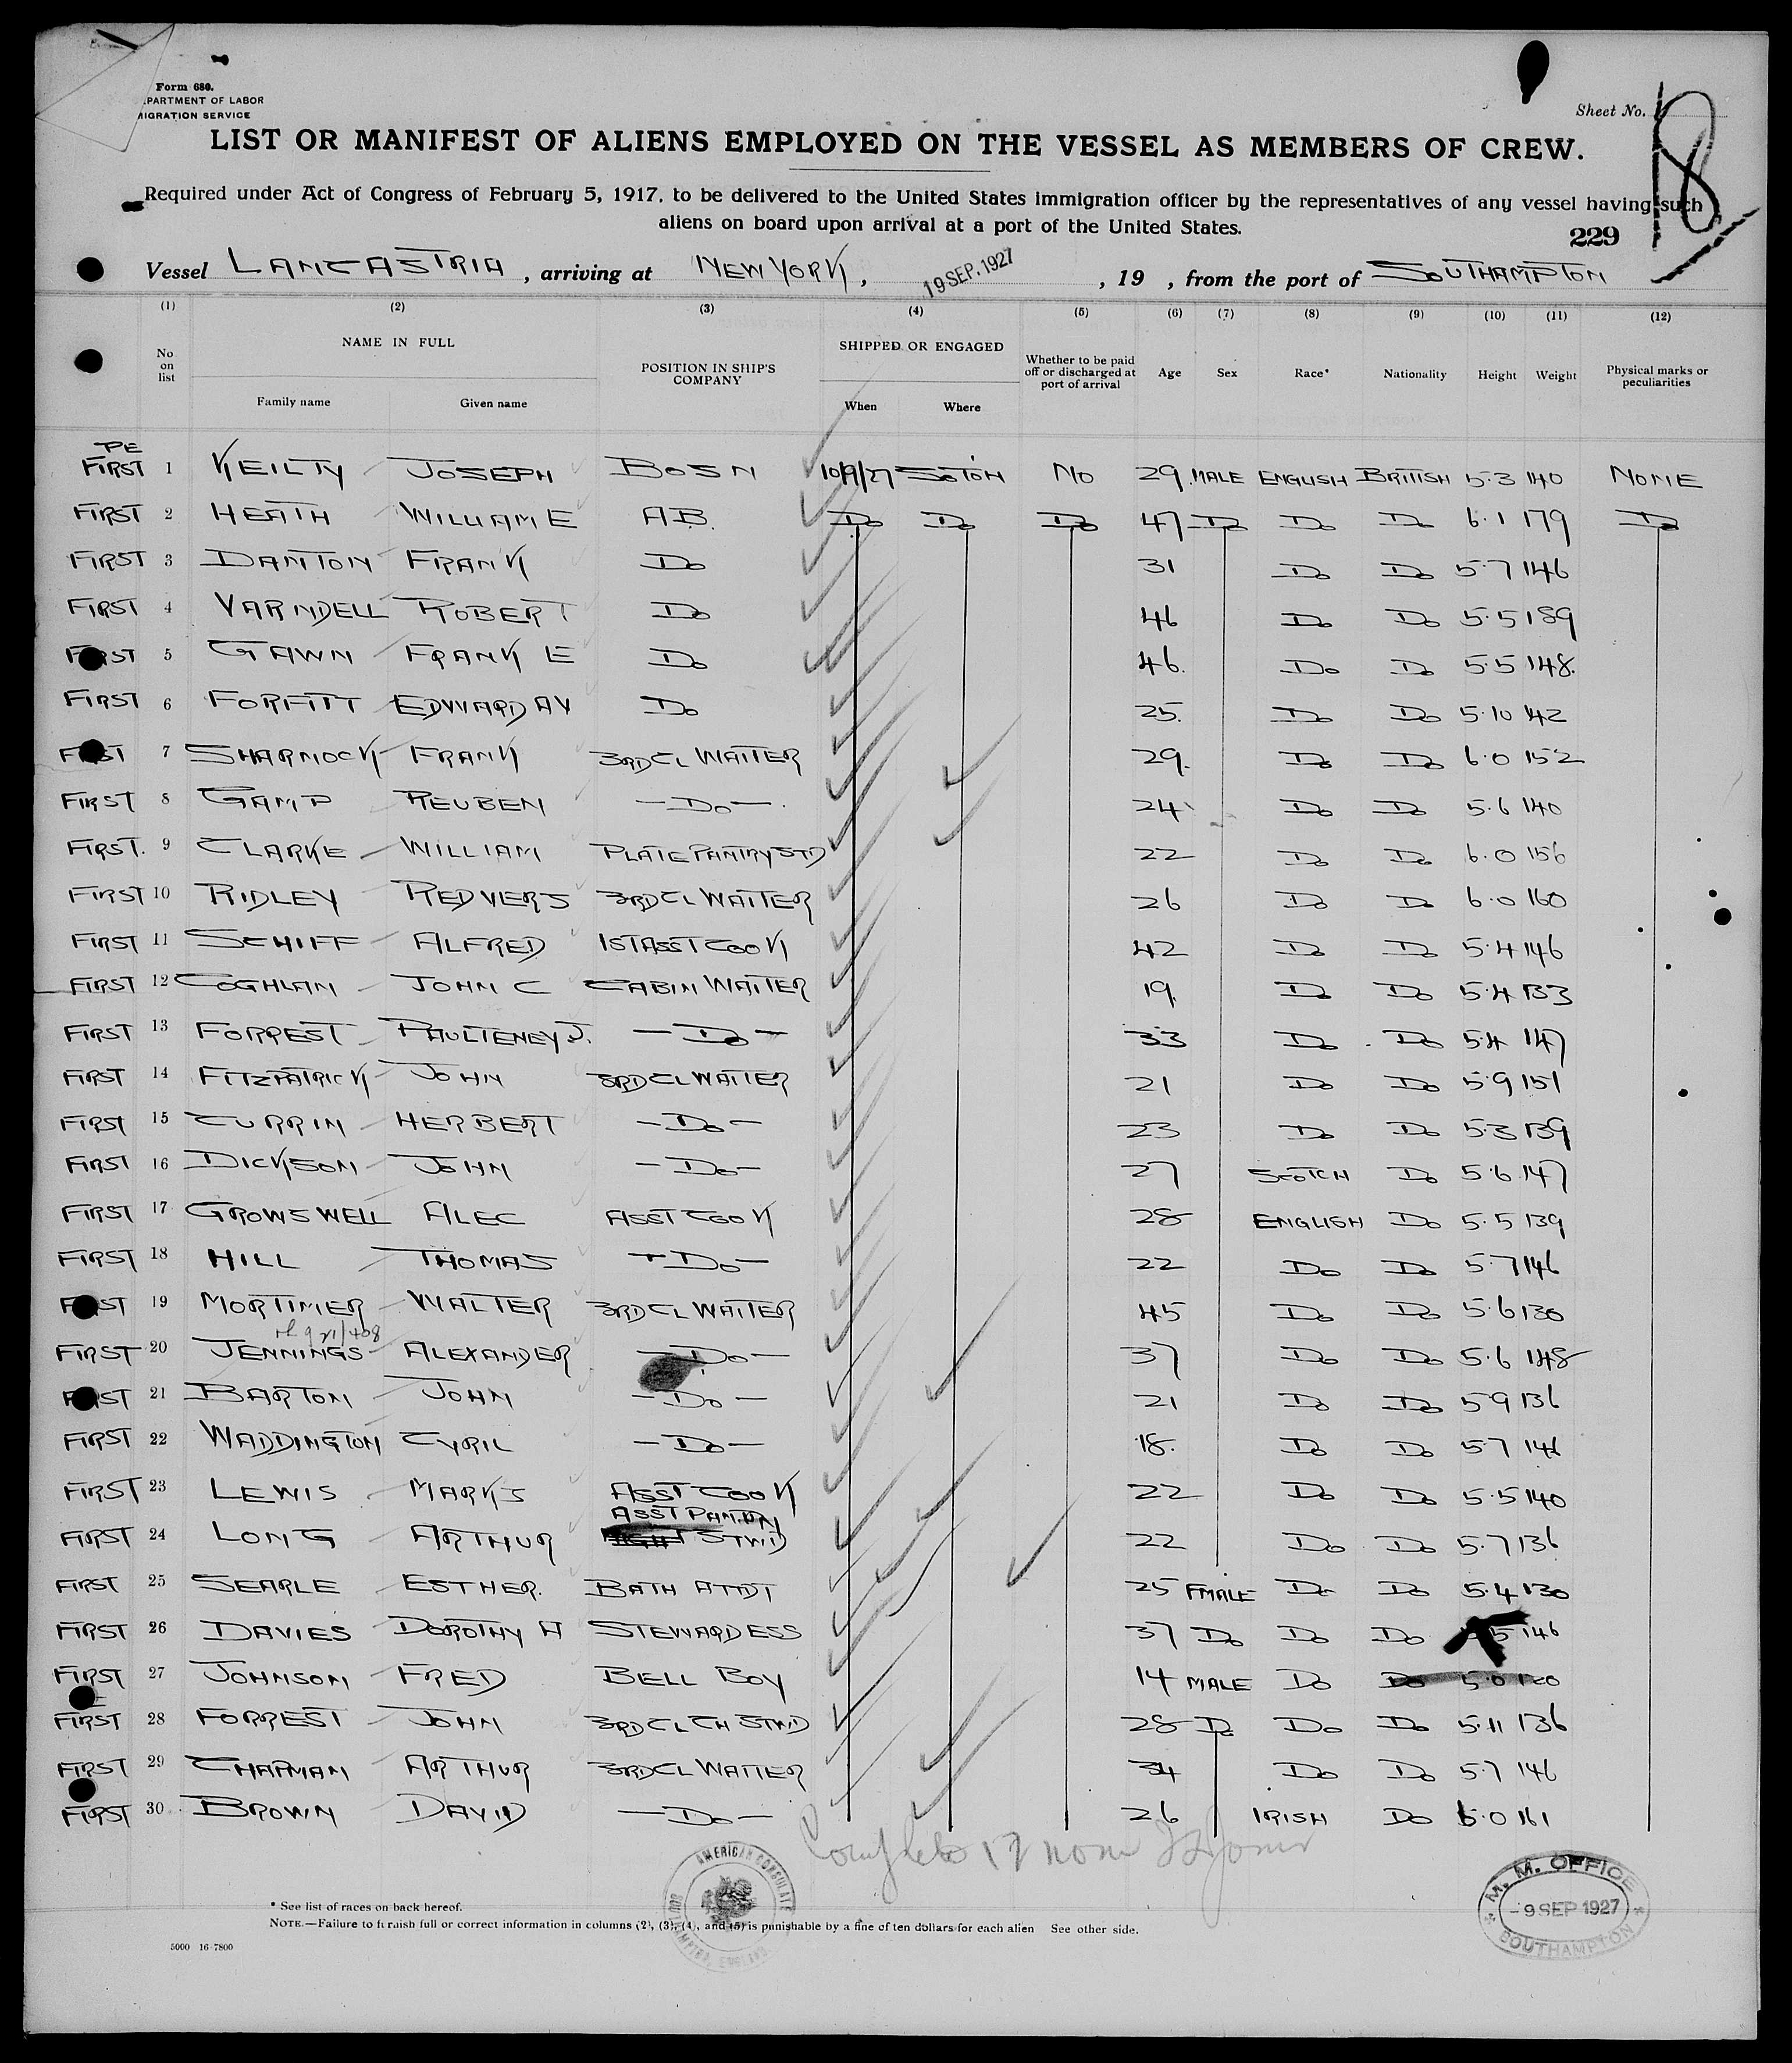 Form 680.
PARTMENT OF LABOR
MIGRATION SERVICE
Sheet No.
LIST OR MANIFEST OF ALIENS EMPLOYED ON THE VESSEL AS MEMBERS OF CREW.
Required under Act of Congress of February 5, 1917, to be delivered to the United States immigration officer by the representatives of any vessel having such
aliens on board upon arrival at a port of the United States.
229
Vessel LANCASTRIA, arriving at NEW YORK, 19 SEP. 1927, 19 , from the port of SOUTHAMPTON
(1) (2) (3) (4) (5) (6) (7) (8) (9) (10) (11) (12)
No on list NAME IN FULL POSITION IN SHIP'S COMPANY SHIPPED OR ENGAGED Whether to be paid off or discharged at port of arrival Age Sex Race* Nationality Height Weight Physical marks or peculiarities
Family name Given name When Where
PE
FIRST 1 KEILTY JOSEPH BOSN 10/9/27 SOTON NO 29 MALE ENGLISH BRITISH 5.3 140 NONE
FIRST 2 HEATH WILLIAM E A.B. Do Do Do 47 Do Do Do 6.1 179 Do
FIRST 3 DANTON FRANK Do 31 Do Do 5.7 146
FIRST 4 VARNDELL ROBERT Do 46 Do Do 5.5 189
FIRST 5 GAWN FRANK E Do 46. Do Do 5.5 148.
FIRST 6 FORFITT EDWARD AV Do 25. Do Do 5.10 142
FIRST 7 SHARNOCK FRANK 3RD CL WAITER 29. Do Do 6.0 152
FIRST 8 GAMP REUBEN -Do- 24 Do Do 5.6 140
FIRST. 9 CLARKE WILLIAM PLATE PANTRY STD 22 Do Do 6.0 156
FIRST 10 RIDLEY REDVERS 3RD CL WAITER 26 Do Do 6.0 160
FIRST 11 SCHIFF ALFRED 1ST ASST COOK 42 Do Do 5.4 146
FIRST 12 COGHLAN JOHN C CABIN WAITER 19. Do Do 5.4 133
FIRST 13 FORREST PAULTENEY J. -Do- 33 Do Do 5.4 147
FIRST 14 FITZPATRICK JOHN 3RD CL WAITER 21 Do Do 5.9 151
FIRST 15 CURRIN HERBERT -Do- 23 Do Do 5.3 139
FIRST 16 DICKSON JOHN -Do- 27 SCOTCH Do 5.6 147
FIRST 17 GROWSWELL ALEC ASST COOK 28 ENGLISH Do 5.5 139
FIRST 18 HILL THOMAS -Do- 22 Do Do 5.7 146
FIRST 19 MORTIMER WALTER 3RD CL WAITER 45 Do Do 5.6 130
FIRST 20 JENNINGS ALEXANDER -Do- 37 Do Do 5.6 148
FIRST 21 BARTON JOHN -Do- 21 Do Do 5.9 136
FIRST 22 WADDINGTON CYRIL -Do- 18. Do Do 5.7 146
FIRST 23 LEWIS MARKS ASST COOK 22 Do Do 5.5 140
FIRST 24 LONG ARTHUR ASST PANTRY STWD 22 Do Do 5.7 136
FIRST 25 SEARLE ESTHER. BATH ATTDT 25 FMALE Do Do 5.4 130
FIRST 26 DAVIES DOROTHY H STEWARDESS 37 Do Do Do 5 146
FIRST 27 JOHNSON FRED BELL BOY 14 MALE Do Do 5.0 120
FIRST 28 FORREST JOHN 3RD CL CH STWD 28 Do Do Do 5.11 136
FIRST 29 CHAPMAN ARTHUR 3RD CL WAITER 34 Do Do 5.7 146
FIRST 30 BROWN DAVID -Do- 26 IRISH Do 6.0 161
AMERICAN CONSULATE
SOUTHAMPTON, ENGLAND
M. M. OFFICE
-9 SEP 1927
SOUTHAMPTON
* See list of races on back hereof.
NOTE.—Failure to furnish full or correct information in columns (2), (3), (4), and (5) is punishable by a fine of ten dollars for each alien See other side.
5000 16-7800